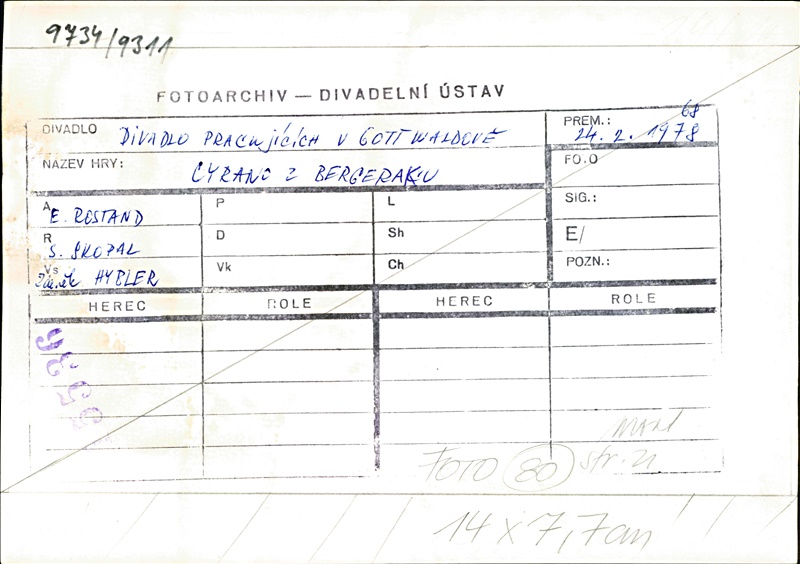 9734/9311
FOTOARCHIV — DIVADELNÍ ÚSTAV
DIVADLO DIVADLO PRACUJÍCÍCH V GOTTWALDOVĚ
PREM.: 68
24. 2. 1978
NÁZEV HRY: CYRANO Z BERGERAKU
FO.O
A E. ROSTAND
P
L
SIG.:
R S. SKOPAL
D
Sh
E/
Vs Zdeněk HYBLER
Vk
Ch
POZN.:
HEREC ROLE HEREC ROLE
FOTO 80 str. 21
14 x 7,7 cm